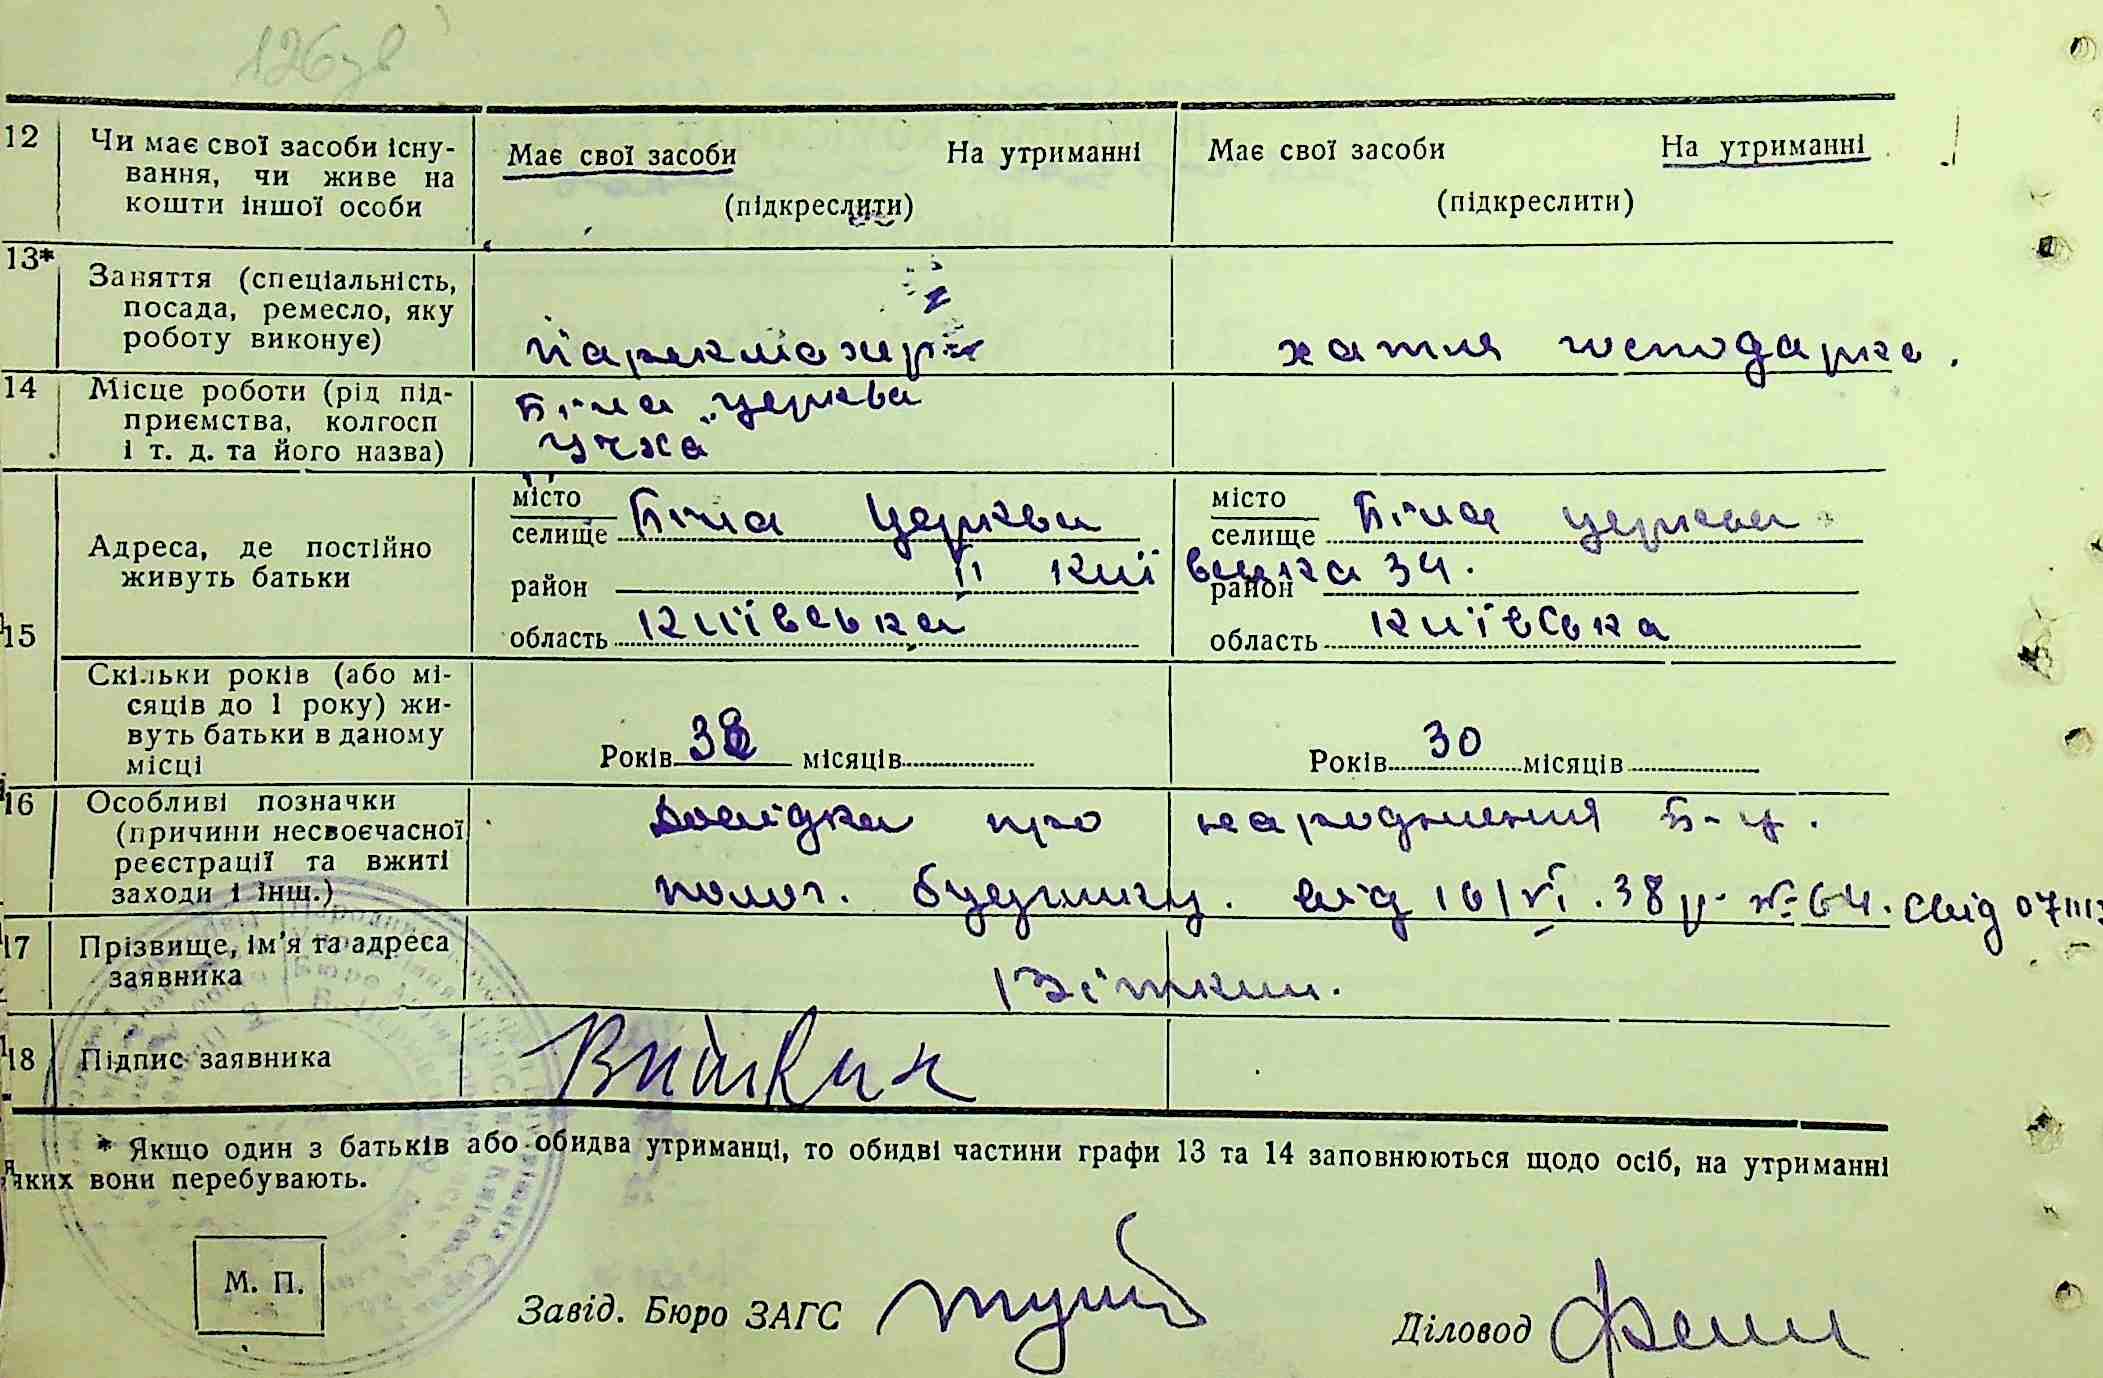 126 зв
12 Чи має свої засоби існу-
вання, чи живе на
кошти іншої особи
Має свої засоби На утриманні
(підкреслити)
Має свої засоби На утриманні
(підкреслити)
13* Заняття (спеціальність,
посада, ремесло, яку
роботу виконує)
парекмахер
хатня господарка.
14 Місце роботи (рід під-
приємства, колгосп
і т. д. та його назва)
Біла Церква
Адреса, де постійно
живуть батьки
місто
селище Біла Церква
район II Київ
область Київська
місто
селище Біла Церква
район вська 34.
область Київська
15 Скільки років (або мі-
сяців до 1 року) жи-
вуть батьки в даному
місці
Років 38 місяців
Років 30 місяців
16 Особливі позначки
(причини несвоєчасної
реєстрації та вжиті
заходи і інш.)
Довідка про народження Б-Ц.
полог. будинку. від 16/VI.38 р. № 64. свід
17 Прізвище, ім'я та адреса
заявника
Віткин.
18 Підпис заявника
Виткин
* Якщо один з батьків або обидва утриманці, то обидві частини графи 13 та 14 заповнюються щодо осіб, на утриманні
яких вони перебувають.
М. П.
Завід. Бюро ЗАГС
Діловод